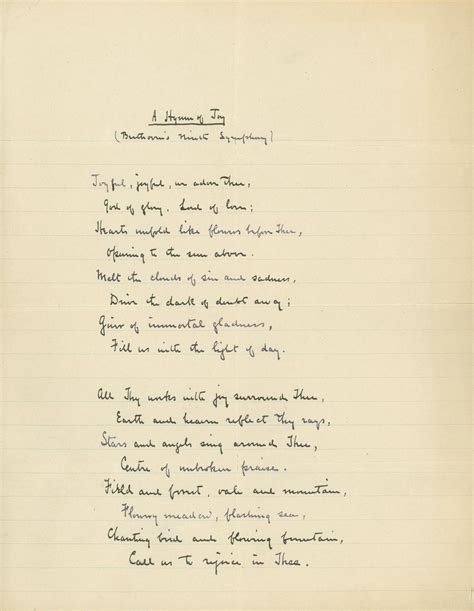 A Hymn of Joy
(Beethoven's Ninth Symphony)
Joyful, joyful, we adore Thee,
God of glory, Lord of love;
Hearts unfold like flowers before Thee,
Opening to the sun above.
Melt the clouds of sin and sadness,
Drive the dark of doubt away;
Giver of immortal gladness,
Fill us with the light of day.
All Thy works with joy surround Thee,
Earth and heaven reflect Thy rays,
Stars and angels sing around Thee,
Centre of unbroken praise.
Field and forest, vale and mountain,
Flowery meadow, flashing sea,
Chanting bird and flowing fountain,
Call us to rejoice in Thee.